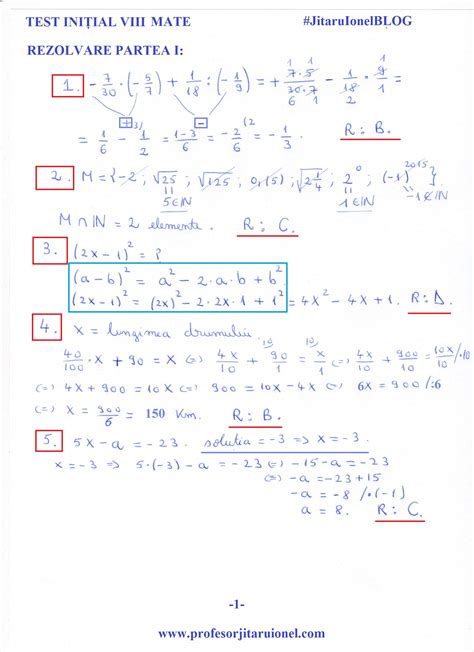 TEST INIȚIAL VIII MATE #JitaruIonelBLOG
REZOLVARE PARTEA I:
1. -7/30·(-5/7)+1/18:(-1/9)= +7·5/30·7 - 1/18·9/1=
= 1/6 - 1/2 = 1-3/6 = -2/6 = -1/3. R: B.
2. M={-2; √25; √125; 0,1(5); √2 1/4; 2⁰; (-1)²⁰¹⁵}
5∈ℕ 1∈ℕ -1∉ℕ
M∩ℕ = 2 elemente. R: C.
3. (2x-1)² = ?
(a-b)² = a² - 2·a·b + b²
(2x-1)² = (2x)² - 2·2x·1 + 1² = 4x² - 4x + 1. R: D.
4. x = lungimea drumului.
40/100·x + 90 = x ⇔ 4x/10 + 90/1 = x/1 ⇔ 4x/10 + 900/10 = 10x/10 /·10
⇔ 4x + 900 = 10x ⇔ 900 = 10x - 4x ⇔ 6x = 900 /:6
⇔ x = 900/6 = 150 Km. R: B.
5. 5x - a = -23. soluția = -3 ⇒ x = -3.
x = -3 ⇒ 5·(-3) - a = -23 ⇔ -15 - a = -23
⇔ -a = -23 + 15
-a = -8 /·(-1)
a = 8. R: C.
-1-
www.profesorjitaruionel.com